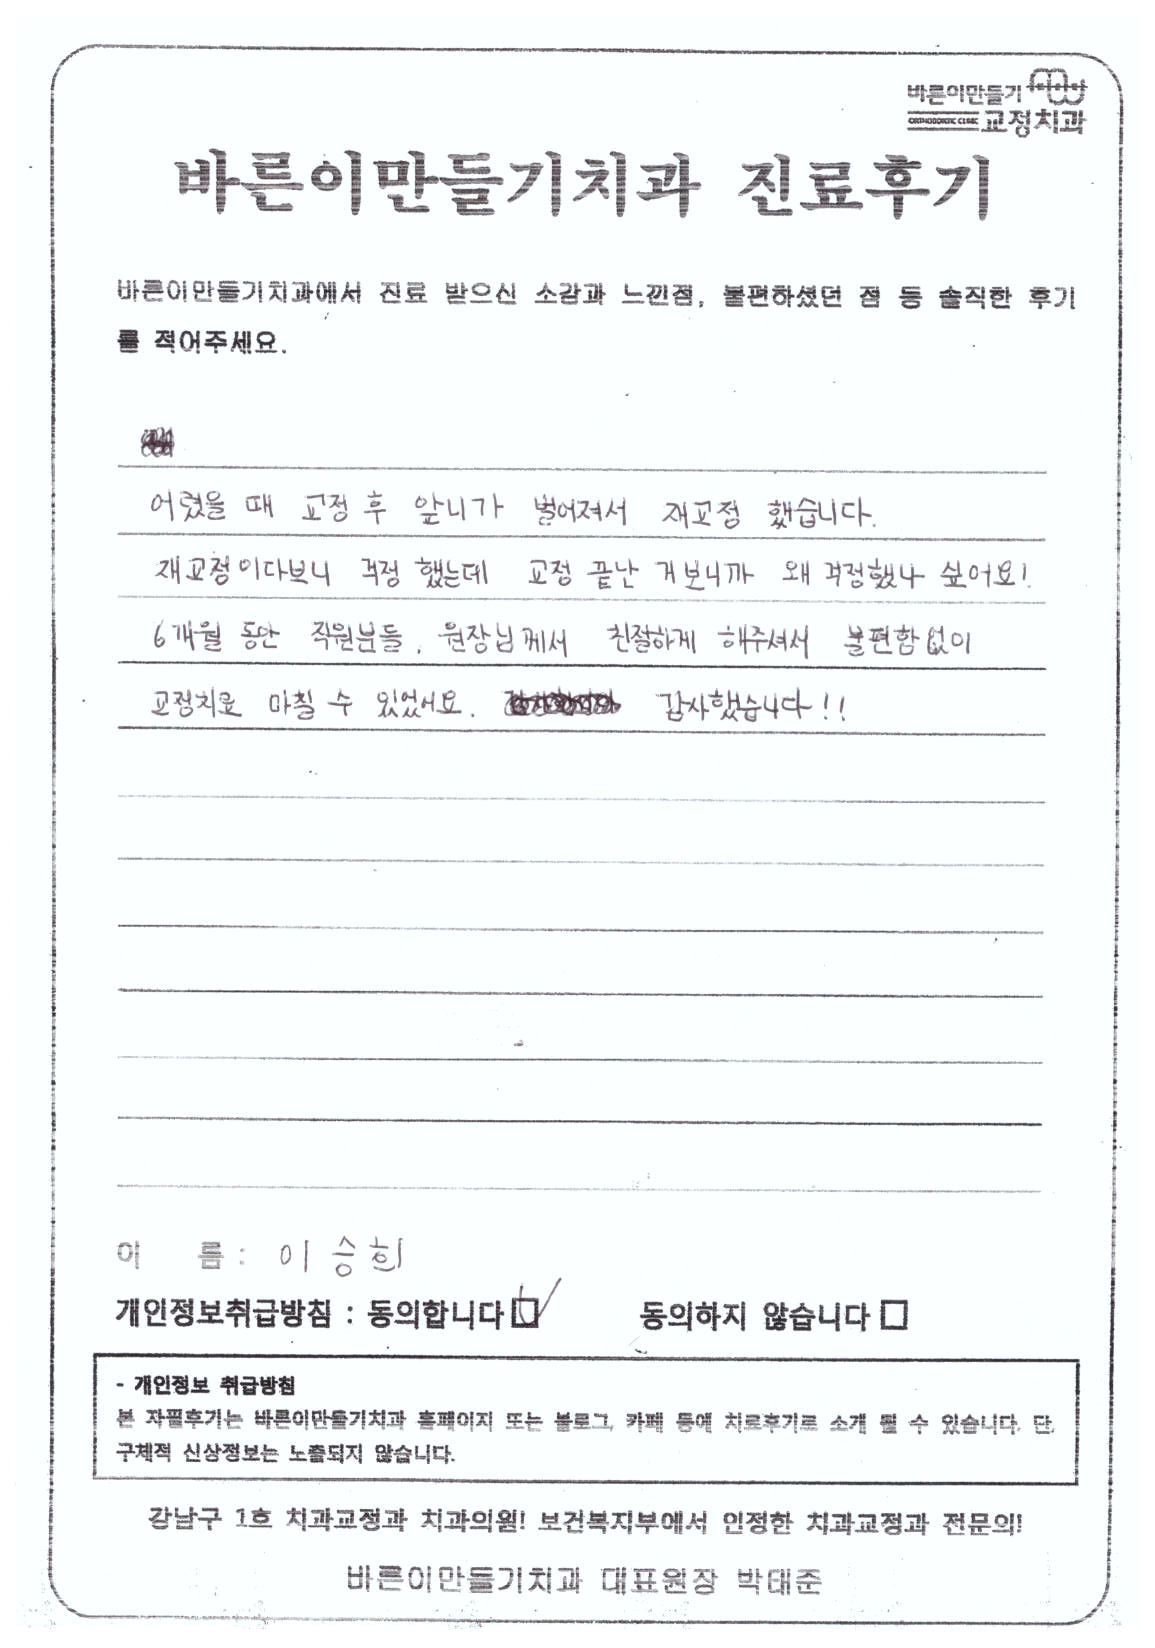 바른이만들기
ORTHODONTIC CLINIC 교정치과
바른이만들기치과 진료후기
바른이만들기치과에서 진료 받으신 소감과 느낀점, 불편하셨던 점 등 솔직한 후기
를 적어주세요.
어렸을 때 교정 후 앞니가 벌어져서 재교정 했습니다.
재교정이다보니 걱정 했는데 교정 끝난 거 보니까 왜 걱정했나 싶어요!
6개월 동안 직원분들, 원장님께서 친절하게 해주셔서 불편함없이
교정치료 마칠 수 있었서요. 감사했습니다!!
이 름 : 이승희
개인정보취급방침 : 동의합니다 동의하지 않습니다
- 개인정보 취급방침
본 자필후기는 바른이만들기치과 홈페이지 또는 블로그, 카페 등에 치료후기로 소개 될 수 있습니다. 단,
구체적 신상정보는 노출되지 않습니다.
강남구 1호 치과교정과 치과의원! 보건복지부에서 인정한 치과교정과 전문의!
바른이만들기치과 대표원장 박태준